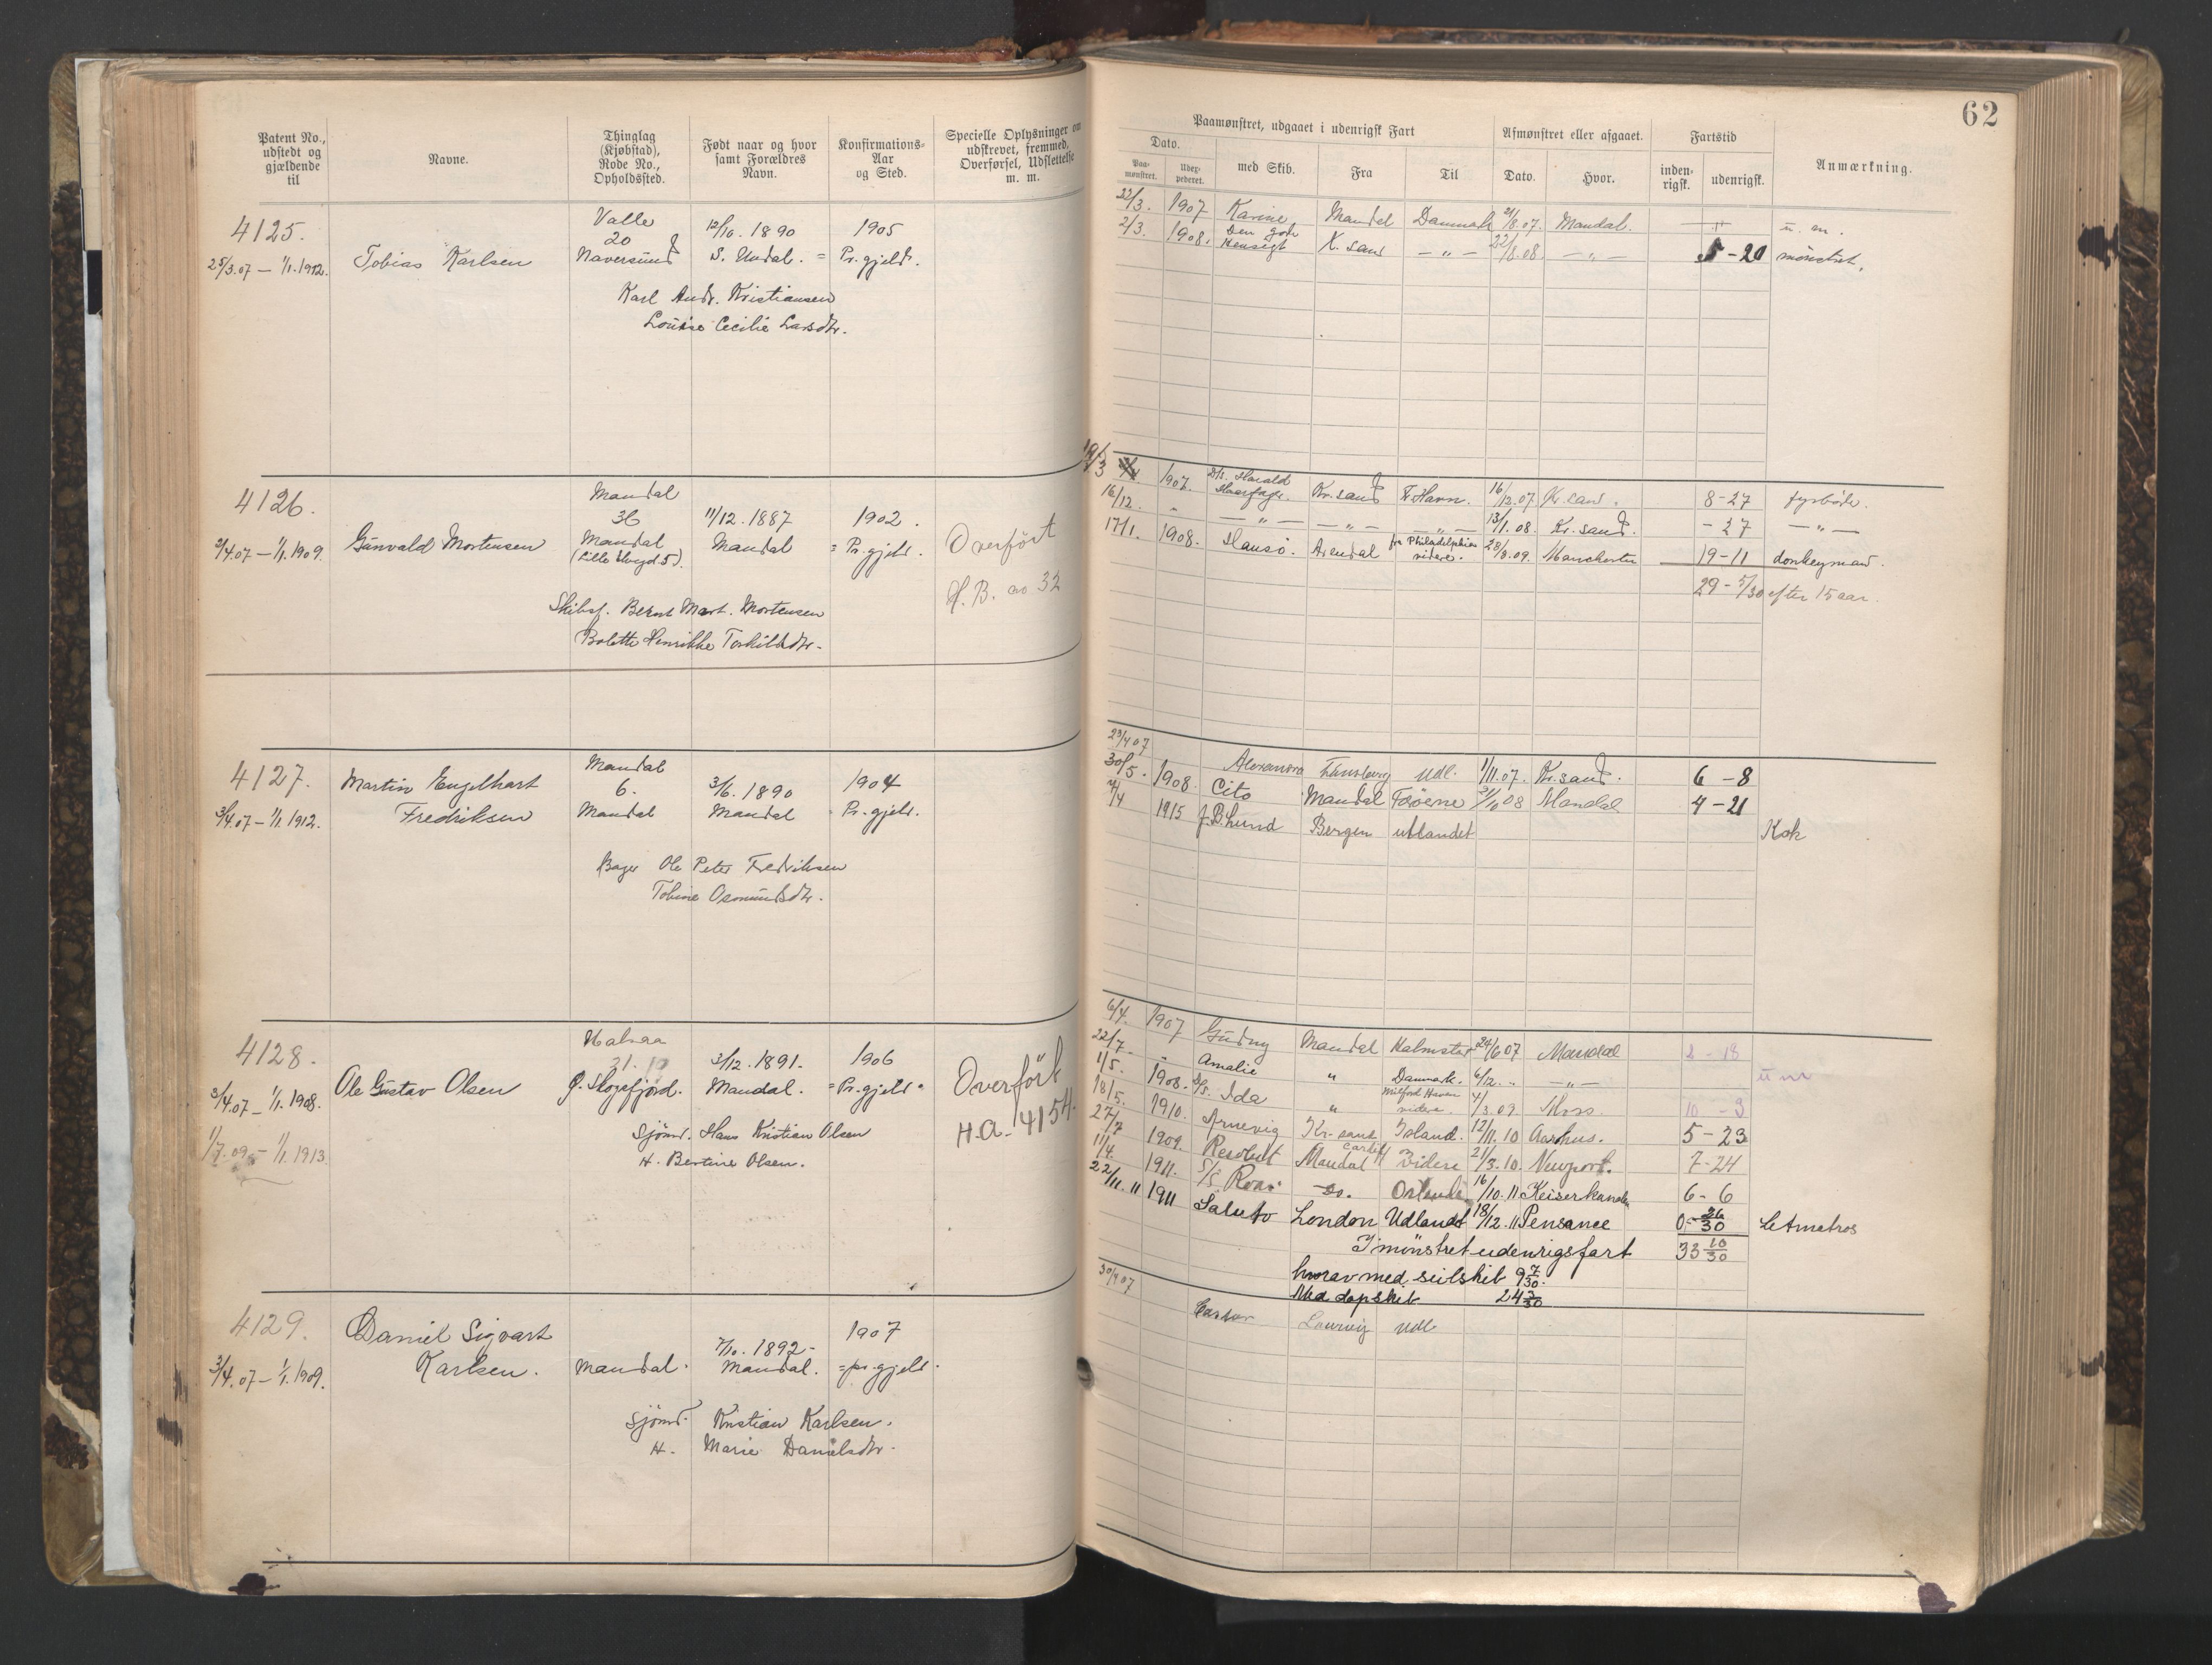 62
Patent No., udstedt og gjældende til
Navne.
Thinglag (Kjøbstad), Rode No., Opholdssted.
Født naar og hvor samt Forældres Navn.
Konfirmations-Aar og Sted.
Specielle Oplysninger om udskrevet, fremmed, Overførsel, Udslettelse m. m.
Paamønstret, udgaaet i udenrigsk Fart
Afmønstret eller afgaaet.
Fartstid
Anmærkning.
Dato.
Paa-mønstret.
med Skib.
Fra
Til
Dato.
Hvor.
inden-rigsk.
udenrigsk.
4125.
25/3.07 – 1/1.1912.
Tobias Karlsen
Valle
20
Naversund
12/10. 1890
S. Undal.
1905
= Pr. gjeld.
Karl Andr. Kristiansen
Louise Cecilie Larsdtr.
22/3. 1907 Karine Mandal Danmark 21/8.07. Mandal. u. m.
2/3. 1908. Den gode Hensigt K. sand – " – 22/8.08. – " – 5 – 20 mønstret.
4126.
2/4.07 – 1/1.1909.
Gunvald Mortensen
Mandal
36
Mandal
(Lille Elvegd. 5).
11/12. 1887
Mandal
1902.
= Pr. gjeld.
Overført
H. B. no 32
Skibsf. Bernt Mart. Mortensen
Bolette Henrikke Torkildsdtr.
19/3 1907. D/S. Harald Haarfager. Kr. sand Fr. Havn. 16/12.07 Kr. sand. 8 – 27 fyrbøder
16/12. " – " – – " – – " – 13/1.08. Kr. sand. – 27 – " –
17/1. 1908. Hausö. Arendal fra Philadelphia videre. 28/8.09. Manchester 19 – 11 donkeymand.
29 – 5/30 efter 15 aar.
4127.
3/4.07 – 1/1.1912.
Martin Engelhart
Fredriksen
Mandal
6.
Mandal
3/6. 1890
Mandal
1904
= Pr. gjeld.
Bager Ole Peter Fredriksen
Tobine Osmundsdtr.
29/4 07 Alexandra Tønsberg Udl. 1/11.07. Kr. sand. 6 – 8
30/5. 1908. Cito Mandal Færöerne 21/10 08 Mandal 4 – 21
4/4 1915 J. B. Lund Bergen utlandet
Kok
4128.
3/4.07 – 1/1.1908.
1/7.09 – 1/1.1913.
Ole Gustav Olsen
Halsaa
21.
Ø. Skogsfjord.
3/12. 1891.
Mandal.
1906
= Pr. gjeld.
Overført
H. A. 4154.
Sjömd. Hans Kristian Olsen
H. Bertine Olsen.
6/4. 1907 Gudny Mandal Halmstad 24/6 07 Mandal 2 – 18
22/7. " Amalie " Danmark. 6/12. " – " – u m
1/5. 1908. S/S. Ida " Milford Haven videre. 4/3.09 Moss. 10 – 3
18/5. 1910. Arnevig Kr. sand Island. 12/11.10 Aarhus. 5 – 23
27/7 1909. Resolut Mandal Cardiff Videre 21/3.10. Newport. 7 – 24
11/4. 1911. S/S. Roar do. Ostende 16/10.11 Keiserkanalen 6 – 6
22/11.11 1911 Saluto London Udlandet 18/12.11 Pensance 0 – 26/30 Letmatros
I mönstret udenrigsfart 33 10/30
hvorav med seilskib 9 7/30.
Med dapskib 24 3/30
4129.
3/4.07 – 1/1.1909.
Daniel Sigvart
Karlsen.
Mandal.
7/10. 1892 –
Mandal.
1907
= pr. gjeld.
Sjömd. Kristian Karlsen.
H. Marie Danielsdtr.
30/4 07
Castor Laurvig Udl.